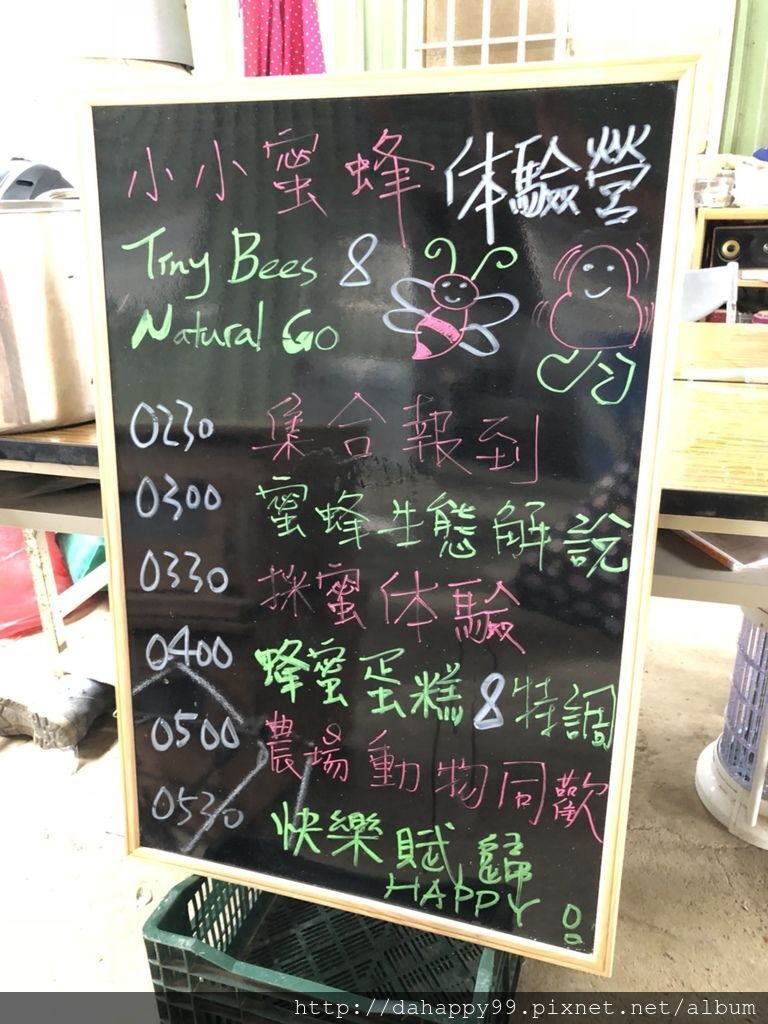 小小蜜蜂体驗營
Tiny Bees &
Natural Go
0230 集合報到
0300 蜜蜂生態解說
0330 採蜜体驗
0400 蜂蜜蛋糕&特調
0500 農場動物同歡
0530 快樂賦歸
HAPPY!
http://dahappy99.pixnet.net/album